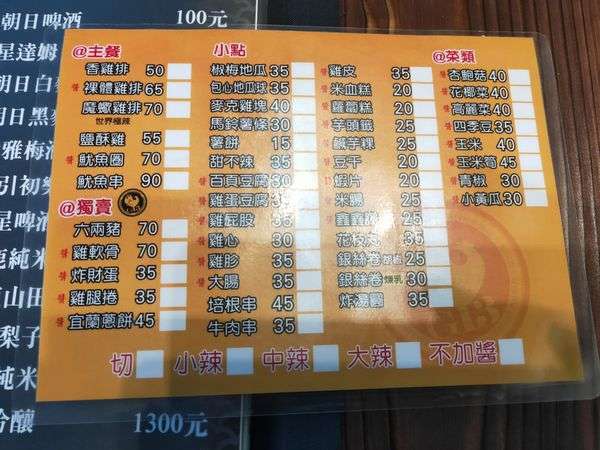 朝日啤酒 100元
星達姆
朝日白
朝日黑
雅梅酒
引初
星啤酒
純米
山田
梨子
純米
吟釀 1300元
@主餐
香雞排 50
醬 裸體雞排 65
魔蠍雞排 70
世界極辣
鹽酥雞 55
醬 魷魚圈 70
醬 魷魚串 90
@獨賣
六兩豬 70
醬 雞軟骨 70
醬 炸財蛋 35
醬 雞腿捲 35
醬 宜蘭蔥餅 45
小點
椒梅地瓜 35
包心地瓜球 35
麥克雞塊 40
馬鈴薯條 30
薯餅 15
甜不辣 35
醬 百頁豆腐 30
醬 雞蛋豆腐 35
醬 雞屁股 35
醬 雞心 30
醬 雞胗 35
醬 大腸 35
培根串 45
牛肉串 35
醬 雞皮 35
醬 米血糕 20
醬 蘿蔔糕 20
醬 芋頭籤 25
醬 鹹芋粿 25
醬 豆干 20
蝦片 20
醬 米腸 25
醬 鑫鑫腸 25
花枝丸 35
銀絲卷 胡椒 25
銀絲卷 煉乳 30
炸湯圓 35
@菜類
醬 杏鮑菇 40
醬 花椰菜 40
醬 高麗菜 40
醬 四季豆 35
醬 玉米 40
醬 玉米筍 45
醬 青椒 30
醬 小黃瓜 30
切 小辣 中辣 大辣 不加醬